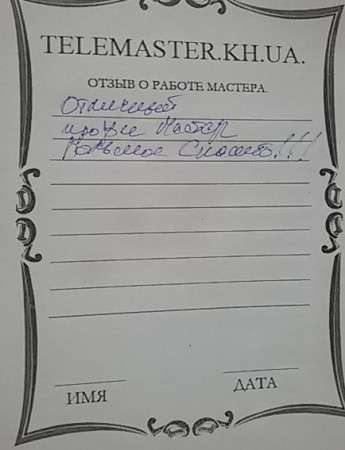 TELEMASTER.KH.UA.
ОТЗЫВ О РАБОТЕ МАСТЕРА.
Отличный
мастер
Большое Спасибо!!!
ИМЯ
ДАТА